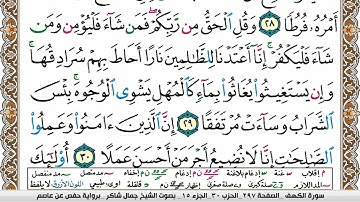 أَمْرُهُۥ فُرُطًا ٢٨ وَقُلِ ٱلْحَقُّ مِن رَّبِّكُمْ ۖ فَمَن شَآءَ فَلْيُؤْمِن وَمَن
شَآءَ فَلْيَكْفُرْ ۚ إِنَّآ أَعْتَدْنَا لِلظَّٰلِمِينَ نَارًا أَحَاطَ بِهِمْ سُرَادِقُهَا ۚ
وَإِن يَسْتَغِيثُوا۟ يُغَاثُوا۟ بِمَآءٍ كَٱلْمُهْلِ يَشْوِى ٱلْوُجُوهَ ۚ بِئْسَ
ٱلشَّرَابُ وَسَآءَتْ مُرْتَفَقًا ٢٩ إِنَّ ٱلَّذِينَ ءَامَنُوا۟ وَعَمِلُوا۟
ٱلصَّٰلِحَٰتِ إِنَّا لَا نُضِيعُ أَجْرَ مَنْ أَحْسَنَ عَمَلًا ٣٠ أُو۟لَٰٓئِكَ
سورة الكهف الصفحة ٢٩٧ الحزب ٣٠ الجزء ١٥ بصوت الشيخ جمال شاكر برواية حفص عن عاصم